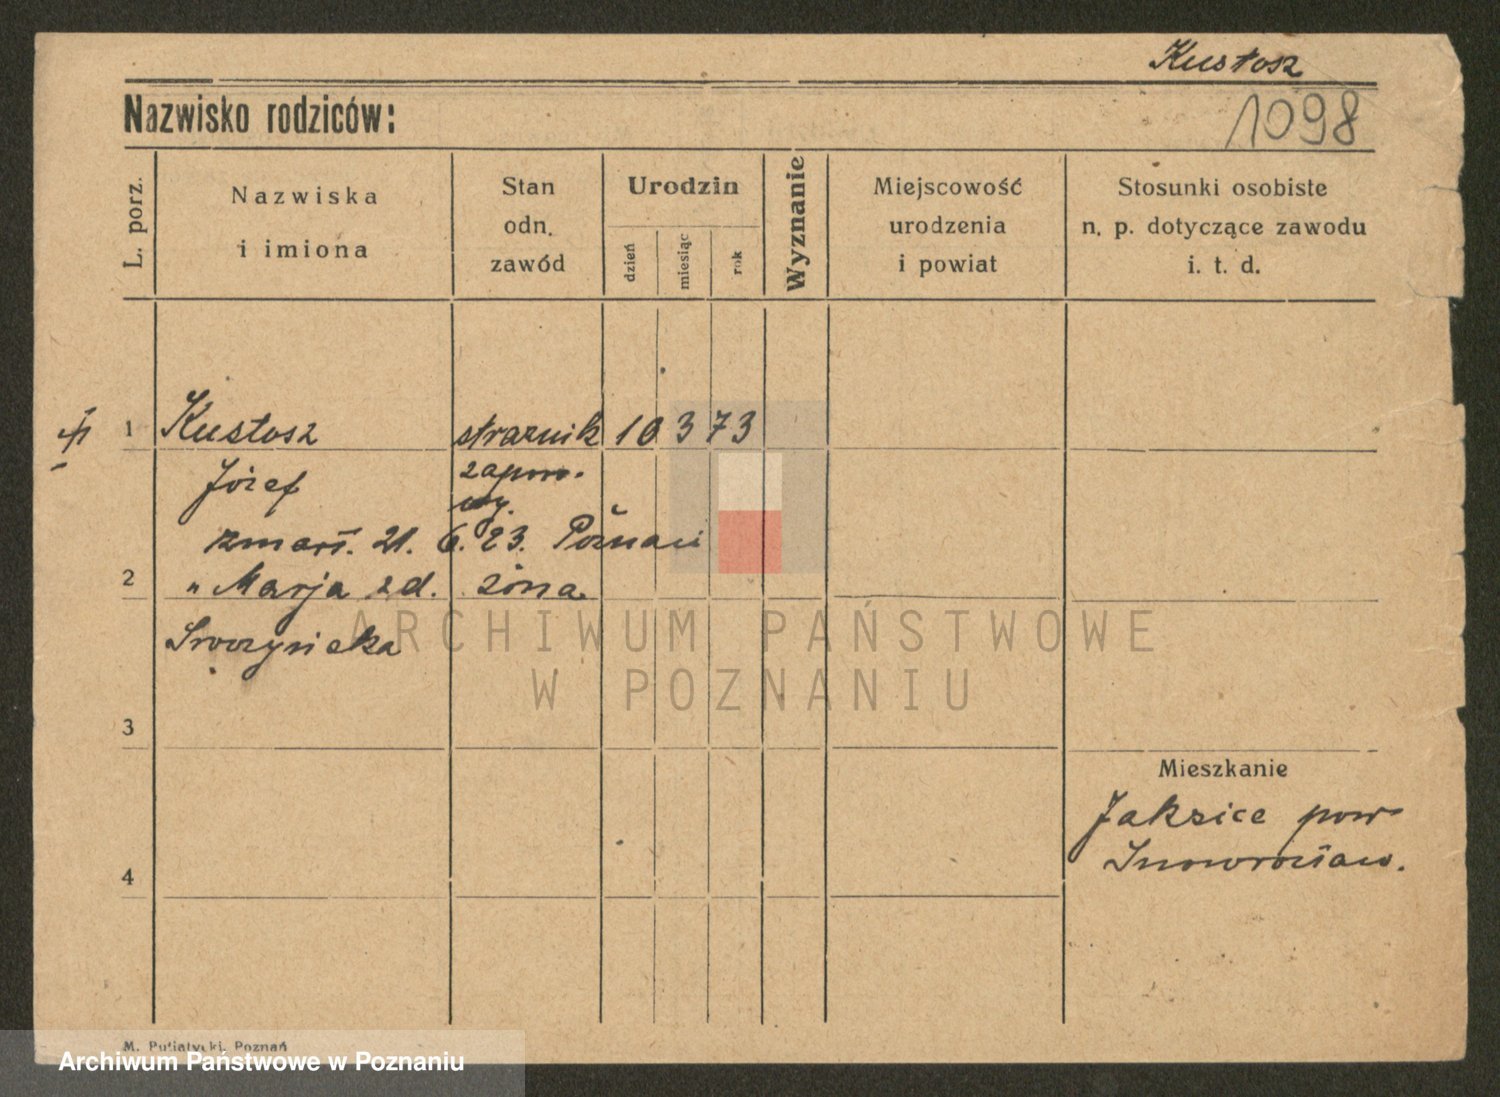 Kustosz
Nazwisko rodziców:
1098
L. porz.
Nazwiska
i imiona
Stan
odn.
zawód
Urodzin
dzień
miesiąc
rok
Wyznanie
Miejscowość
urodzenia
i powiat
Stosunki osobiste
n. p. dotyczące zawodu
i. t. d.
1 Kustosz strażnik 10 3 73
Józef
zmarł. 21. 6. 23. Poznań
2 " Marja zd. żona
3
Mieszkanie
Jaksice pow
Inowrocław.
4
ARCHIWUM PAŃSTWOWE
W POZNANIU
M. Putiatycki, Poznań
Archiwum Państwowe w Poznaniu